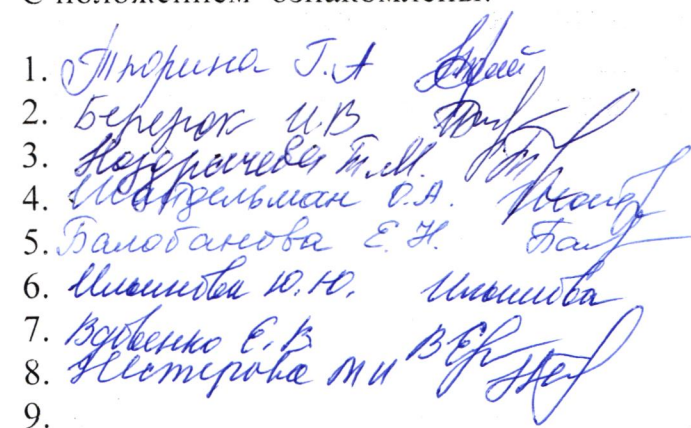 С положением ознакомлены:
1. Тюрина Г.А
2. Березюк И.В
3. Ноздрачева Т.М.
4. Мандельман О.А.
5. Балобанова Е.Н. Бал
6. Ильинова Ю.Ю. Ильинова
7. Вдовенко Е.В
8. Нестерова М И
9.